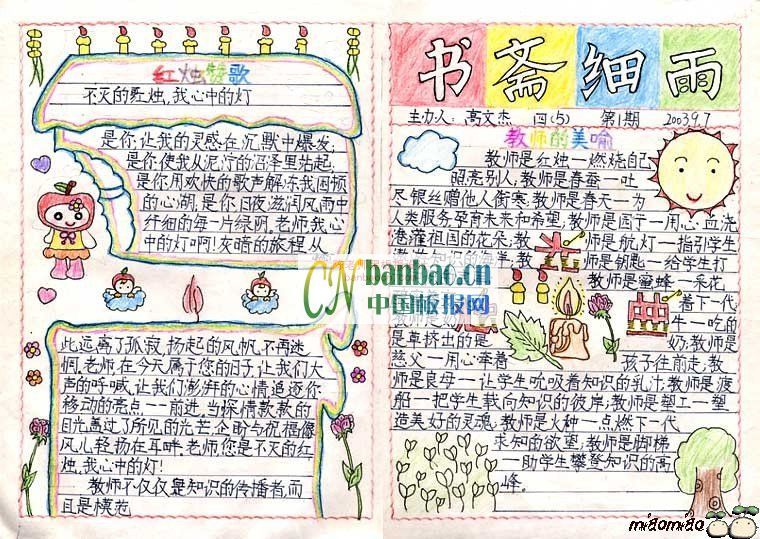 红烛颂歌
不灭的红烛,我心中的灯
是你,让我的灵感在沉默中爆发,
是你使我从泥泞的沼泽里站起,
是你用欢快的歌声解冻我困顿
的心湖,是你日夜滋润风雨中
纤细的每一片绿阴,老师,我心
中的灯啊!灰暗的旅程,从
此远离了孤寂,扬起的风帆,不再迷
惘,老师,在今天属于您的日子,让我们大
声的呼喊,让我们澎湃的心情追逐你
移动的亮点——前进,当深情款款的
目光,高过了所见的光芒,企盼与祝福像
风儿,轻扬在耳畔,老师,您是不灭的红
烛,我心中的灯!
教师不仅仅是知识的传播者,而
且是模范
书斋细雨
主办人:高文杰 四(5) 第1期 2003.9.7
教师的美喻
教师是红烛—燃烧自己
照亮别人;教师是春蚕—吐
尽银丝赠他人御寒;教师是春天—为
人类服务,孕育未来和希望;教师是园丁—用心血浇
灌祖国的花朵;教师是航灯—指引学生
师是钥匙—给学生打
教师是蜜蜂—采花
着下代
牛—吃的
是草挤出的是奶;教师是
慈父—用心牵着孩子往前走;教
师是良母—让学生吮吸着知识的乳汁;教师是渡
船—把学生载向知识的彼岸;教师是塑工—塑
造美好的灵魂;教师是火种—点燃下一代
求知的欲望;教师是脚梯
—助学生攀登知识的高
峰。
CN banbao.cn
中国板报网
miaomiao